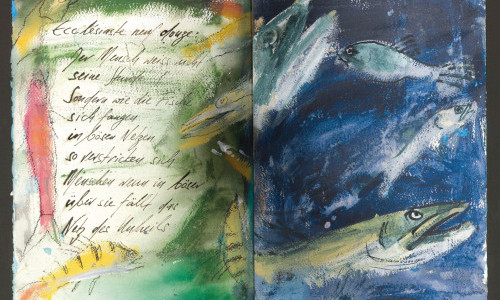 Ecclesiaste neuf douze:
Der Mensch weiss nicht
seine
Sondern wie die Fische
sich fangen
in bösen Netzen
so verstricken sich
Menschen wenn in böser
über sie fällt das
Netz des Unheils